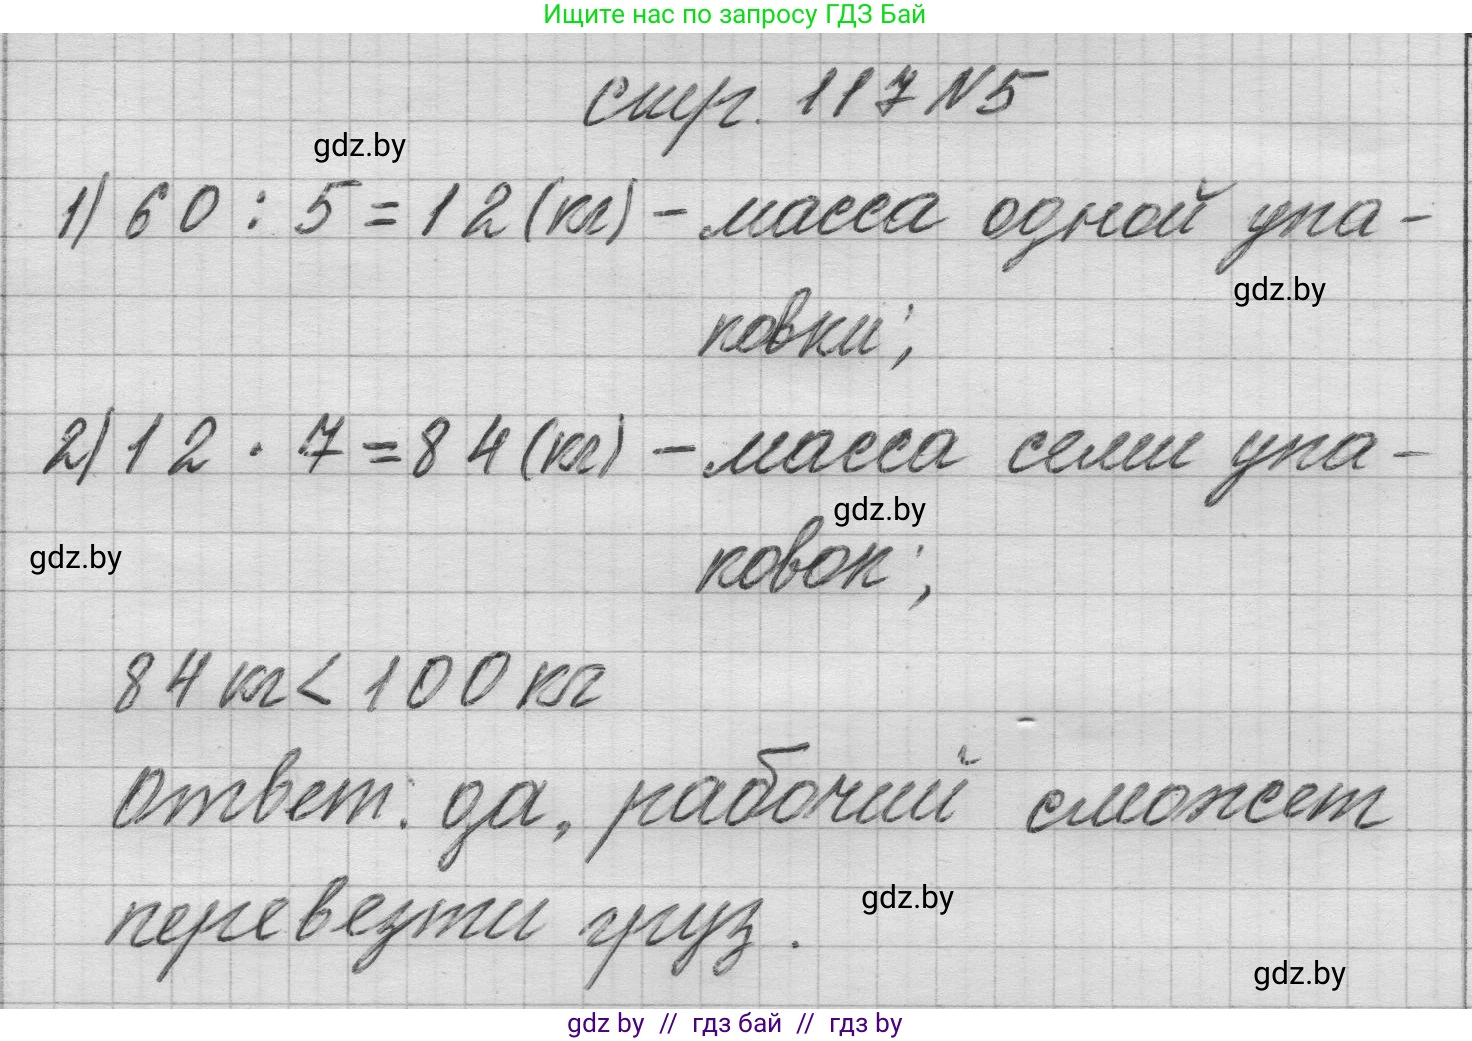 Ищите нас по запросу ГДЗ Бай
стр. 117 №5
gdz.by
1) 60 : 5 = 12 (кг) - масса одной упа-
gdz.by
ковки;
2) 12 · 7 = 84 (кг) - масса семи упа-
gdz.by
gdz.by
ковок;
84 кг < 100 кг
Ответ: да, рабочий сможет
перевезти груз.
gdz.by
gdz.by
gdz by // гдз бай // гдз by